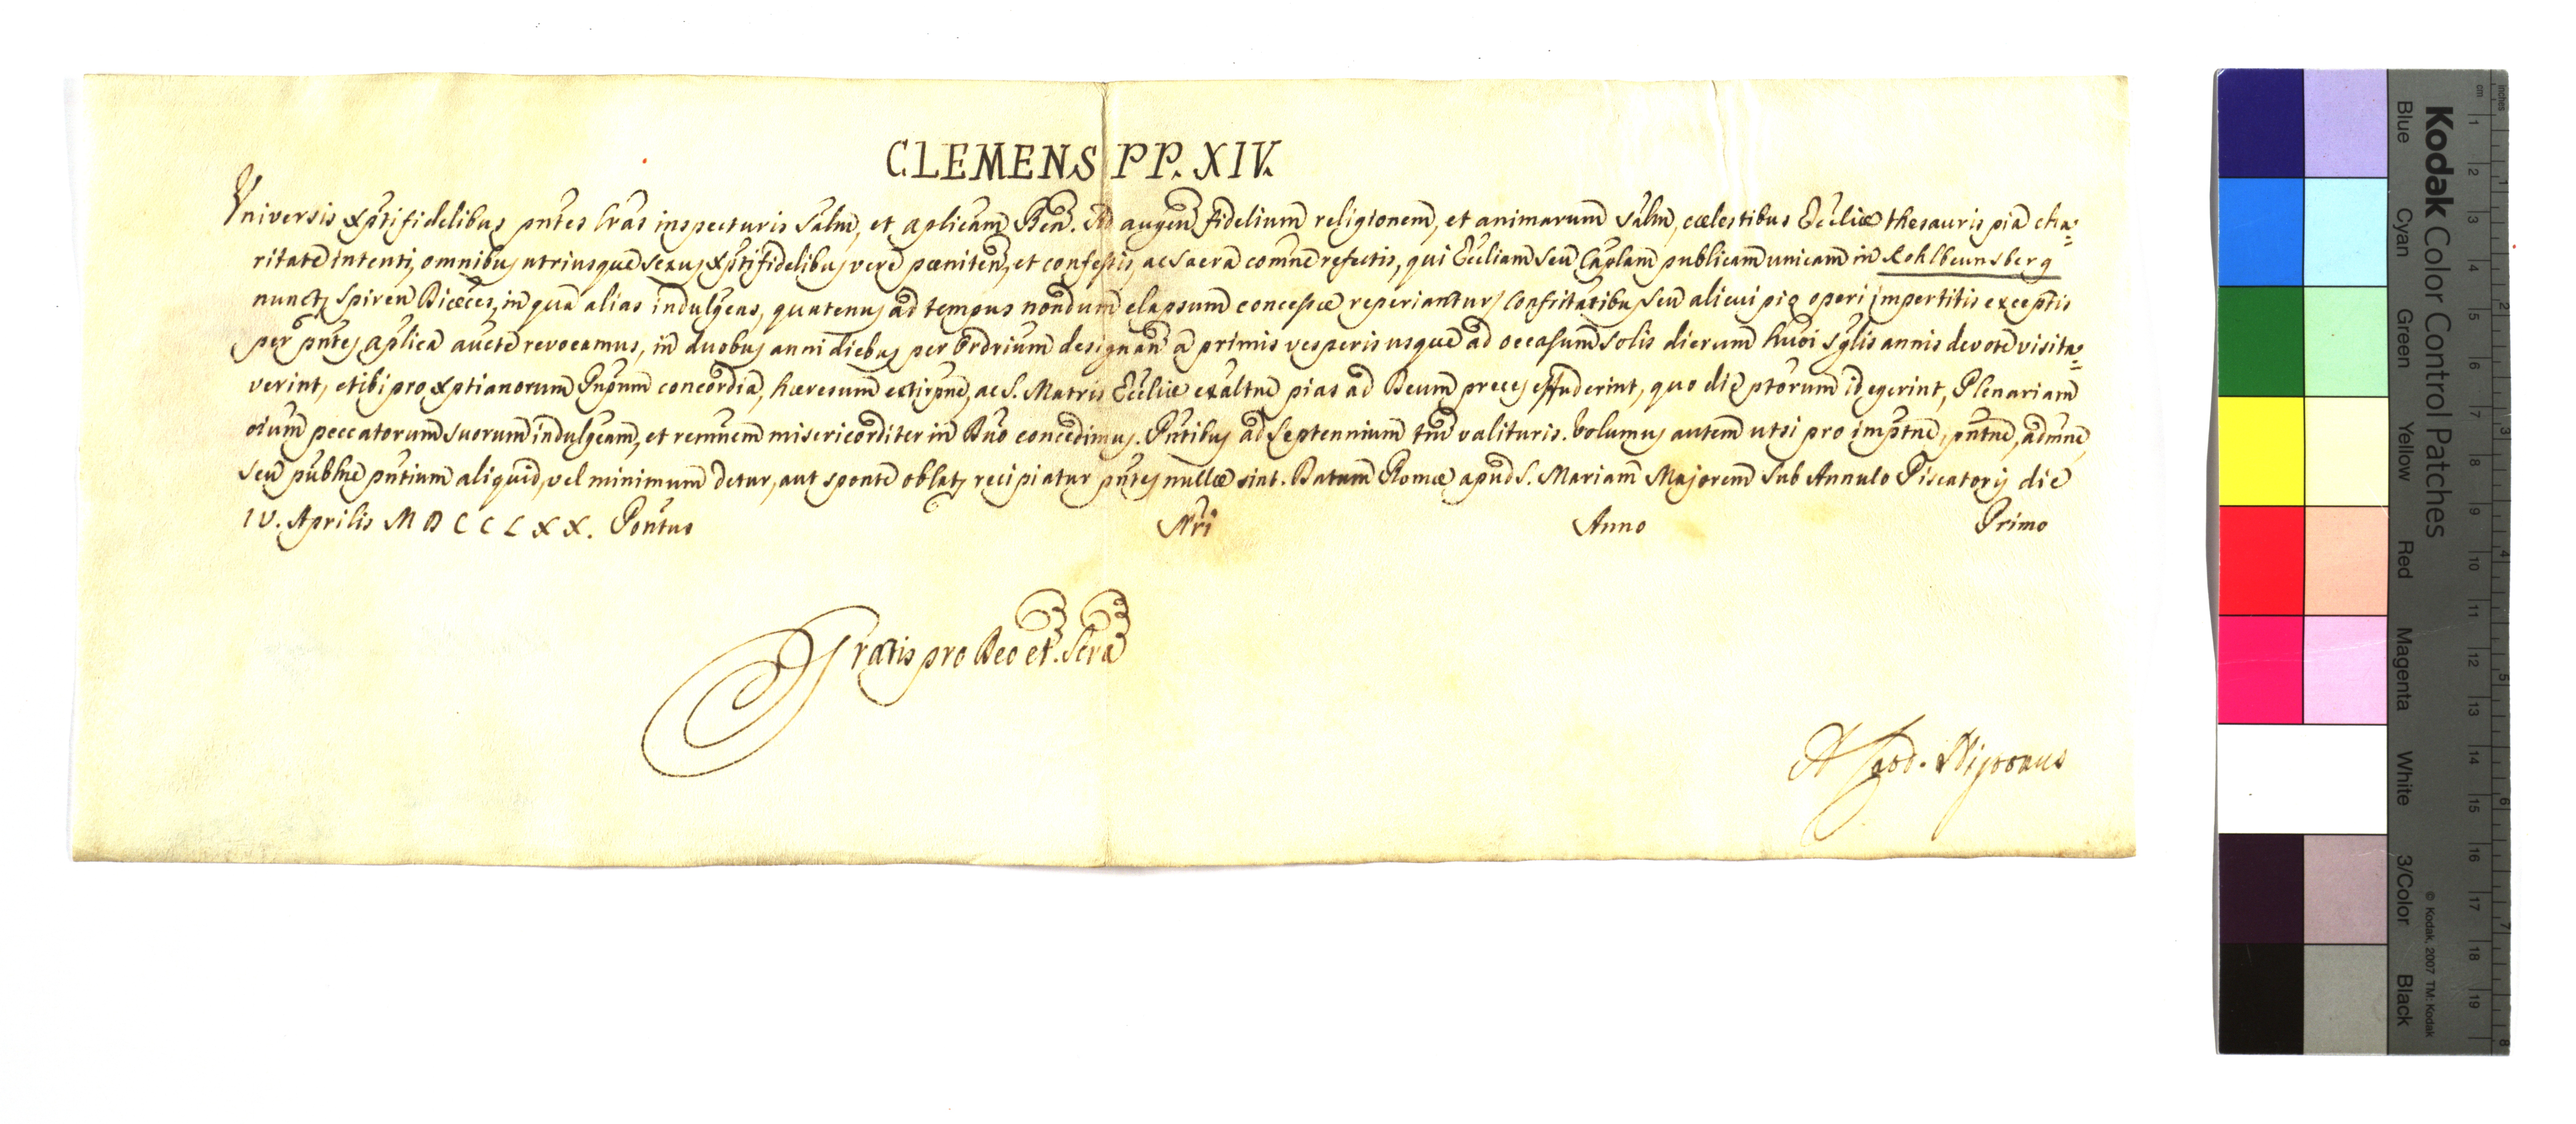 CLEMENS PP. XIV.
Universis Xptifidelibus pntes lras inspecturis Salm, et aplicam Ben. Ad augen fidelium religionem, et animarum salm, cælestibus Ecclıæ thesauris pia cha=
ritate intenti, omnibus utriusque sexus Xptifidelibus vere pæniten, et confessis, ac sacra comne refectis, qui Eccliam seu Caplam publicam unicam in Kohlbrunsberg
nunctz Spiren Diæces, in qua alias indulgens, quatenus ad tempus nondum elapsum concessæ reperiantur, Confritatibus seu alicui pio operi impertitis exceptis
per pntes aplica aucte revocamus, in duobus anni diebus per Ordrium designan a primis vesperis usque ad occasum solis dierum huoi sglis annis devote visita=
verint, et ibi pro Xptianorum Pnpum concordia, hæresum extirpne, ac S. Matris Eccliæ exaltne pias ad Deum preces effuderint, quo die ptorum id egerint, Plenariam
oium peccatorum suorum indulgeam, et remnem misericorditer in Dno concedimus. Pntibus ad Septennium tm valituris. Volumus autem ut si pro imptne, pntne, admne,
seu publne pntium aliquid, vel minimum detur, aut sponte oblatz recipiatur pntes nullæ sint. Datum Romæ apud S. Mariam Majorem sub Annulo Piscatoris die
IV. Aprilis MDCCLXX. Pontus Nri Anno Primo
Gratis pro Deo et Scra
Kodak Color Control Patches
Blue Cyan Green Yellow Red Magenta White 3/Color Black
© Kodak, 2007 TM: Kodak
inches 1 2 3 4 5 6 7 8
cm 1 2 3 4 5 6 7 8 9 10 11 12 13 14 15 16 17 18 19